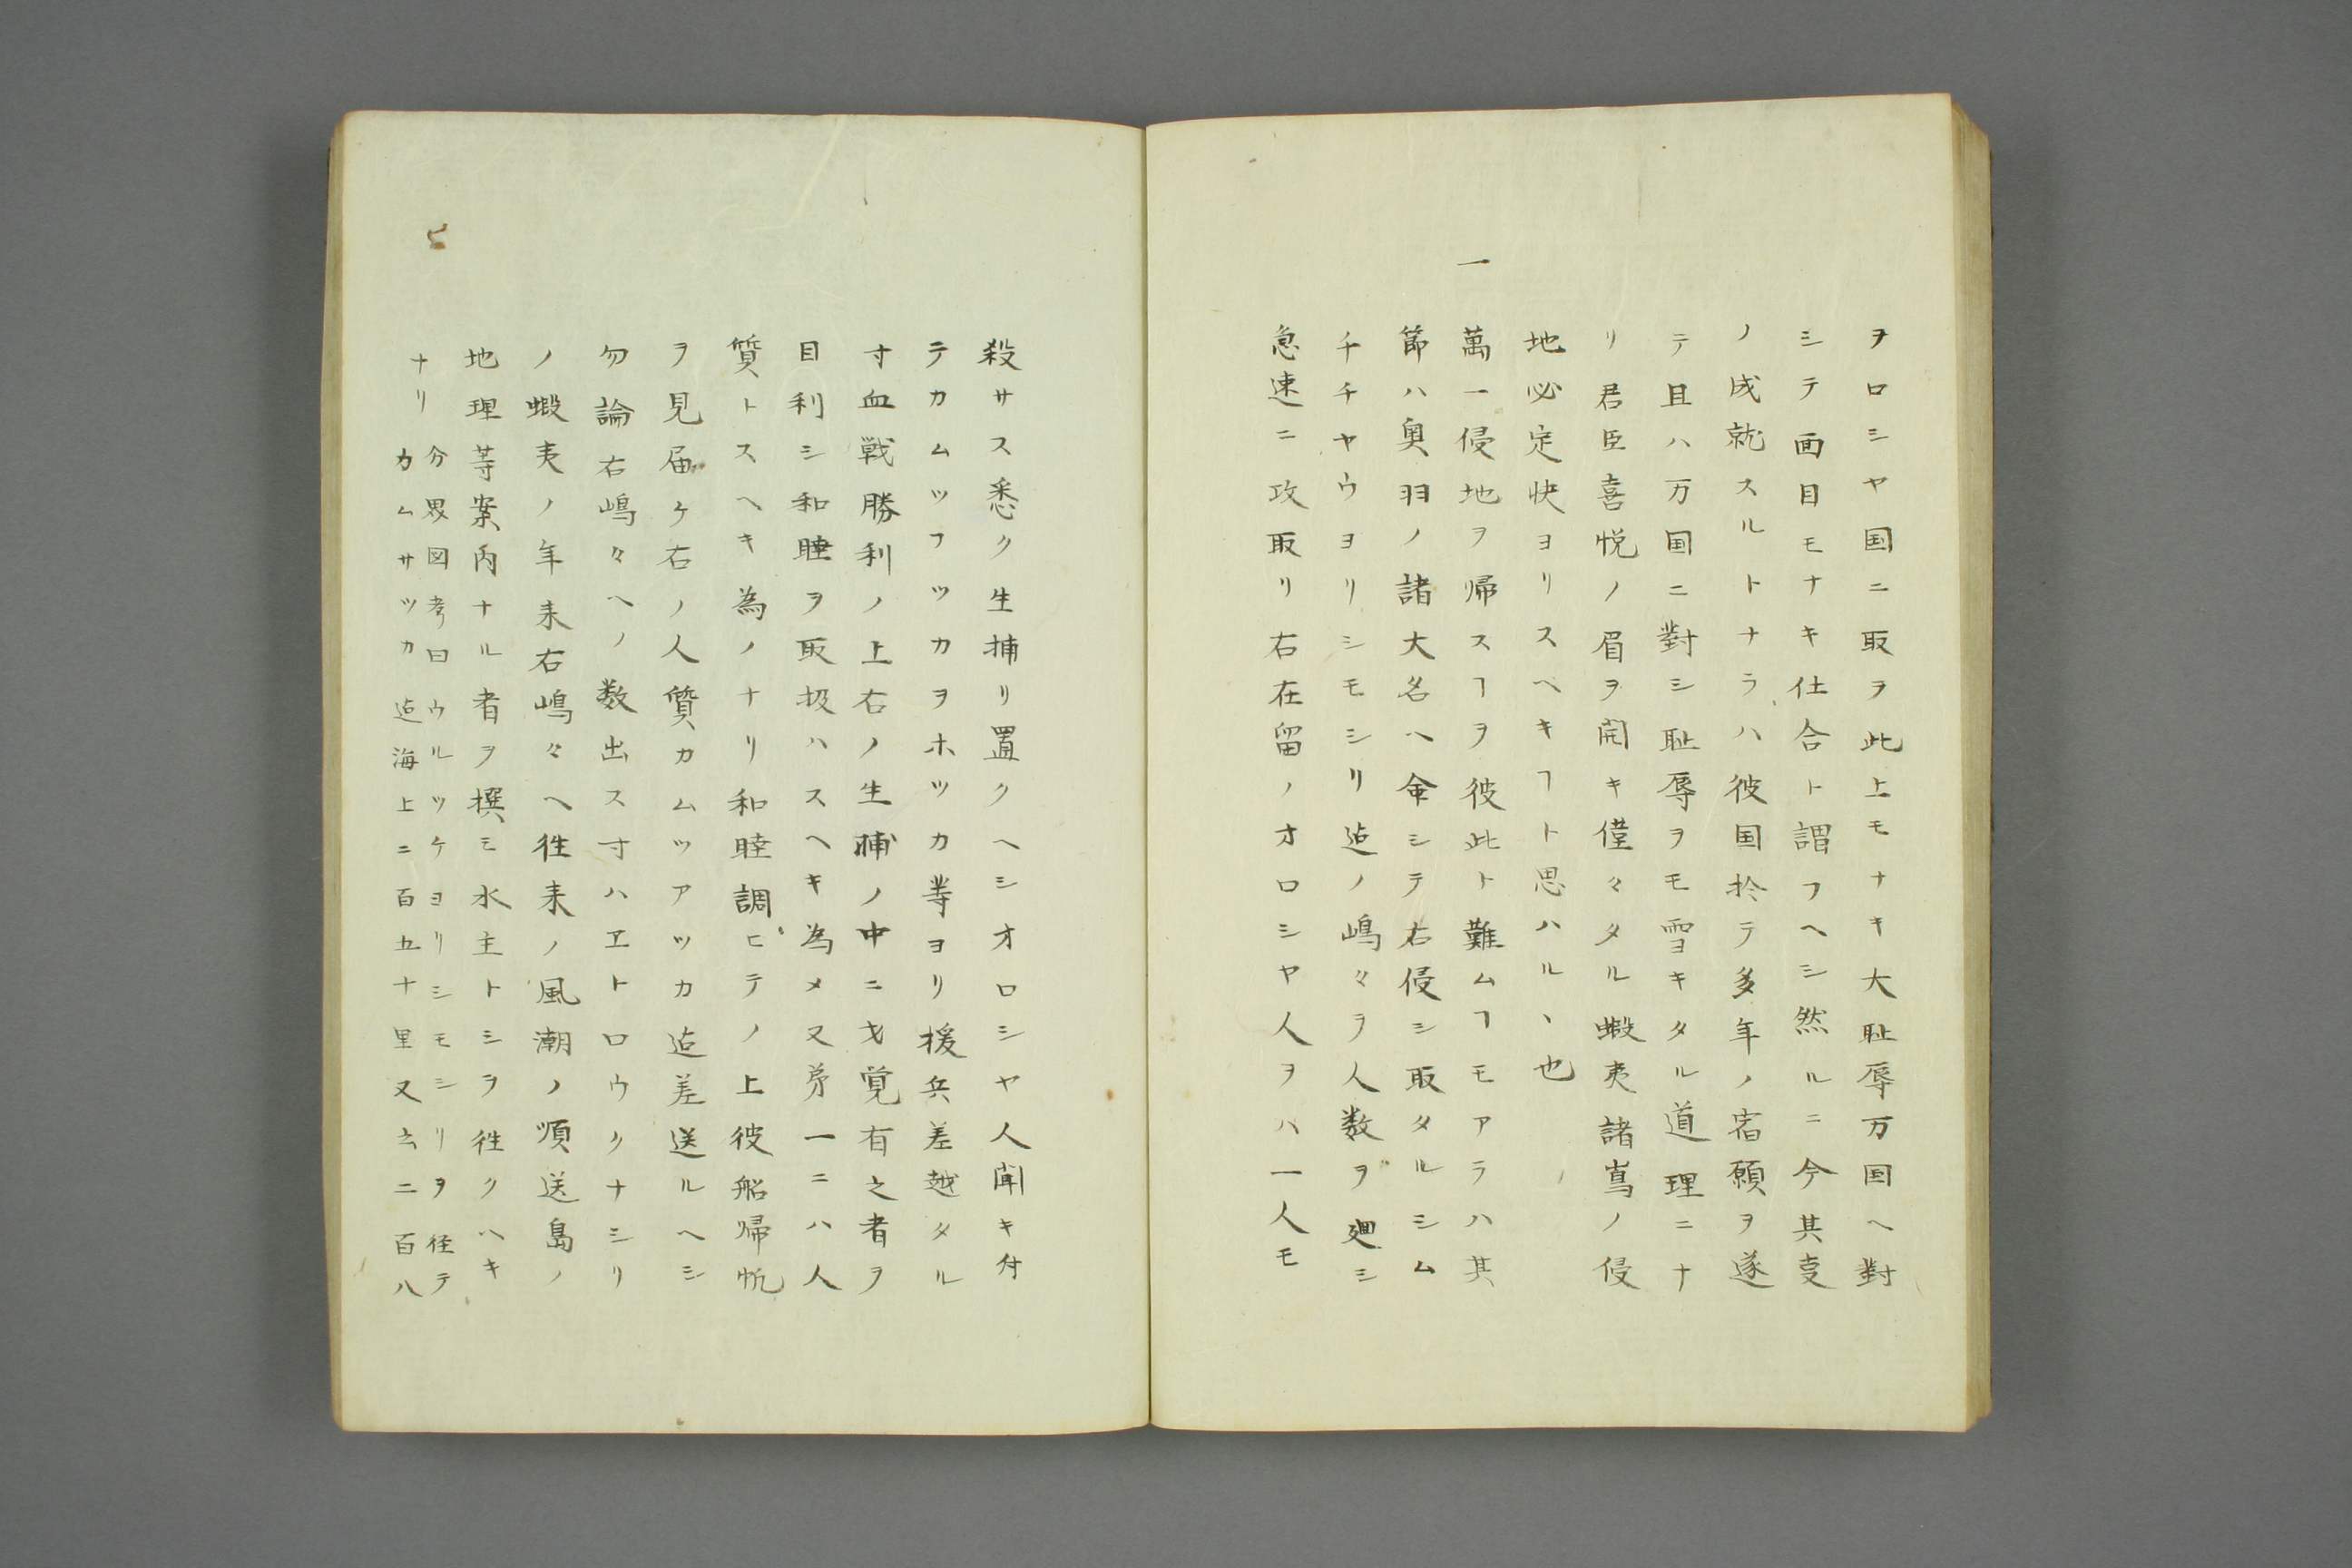 ヲロシヤ国ニ取ヲ此上モナキ大耻辱万国ヘ對
シテ面目モナキ仕合ト謂フヘシ然ルニ今其㕝
ノ成就スルトナラハ彼国於テ多年ノ宿願ヲ遂
テ且ハ万国ニ對シ耻辱ヲモ雪キタル道理ニナ
リ君臣喜悦ノ眉ヲ開キ僅々タル蝦夷諸嶌ノ侵
地必定快ヨリスヘキヿト思ハルヽ也
一 萬一侵地ヲ帰スヿヲ彼此ト難ムヿモアラハ其
節ハ奥羽ノ諸大名ヘ命シテ右侵シ取タルシム
チチヤウヨリシモシリ迠ノ嶋々ヲ人数ヲ廻シ
急速ニ攻取リ右在留ノオロシヤ人ヲハ一人モ
殺サス悉ク生捕リ置クヘシオロシヤ人聞キ付
テカムツフツカヲホツカ等ヨリ援兵差越タル
寸血戦勝利ノ上右ノ生捕ノ中ニ才覚有之者ヲ
目利シ和睦ヲ取扱ハスヘキ為メ又㐧一ニハ人
質トスヘキ為ノナリ和睦調ヒテノ上彼船帰帆
ヲ見届ケ右ノ人質カムツアツカ迠差送ルヘシ
勿論右嶋々ヘノ数出ス寸ハヱトロウクナシリ
ノ蝦夷ノ年来右嶋々ヘ徃来ノ風潮ノ順送島ノ
地理等案内ナル者ヲ撰ミ水主トシヲ徃クヘキ
ナリ 分界図考曰ウルツケヨリシモシリヲ径テ
カムサツカ迠海上ニ百五十里又云二百八